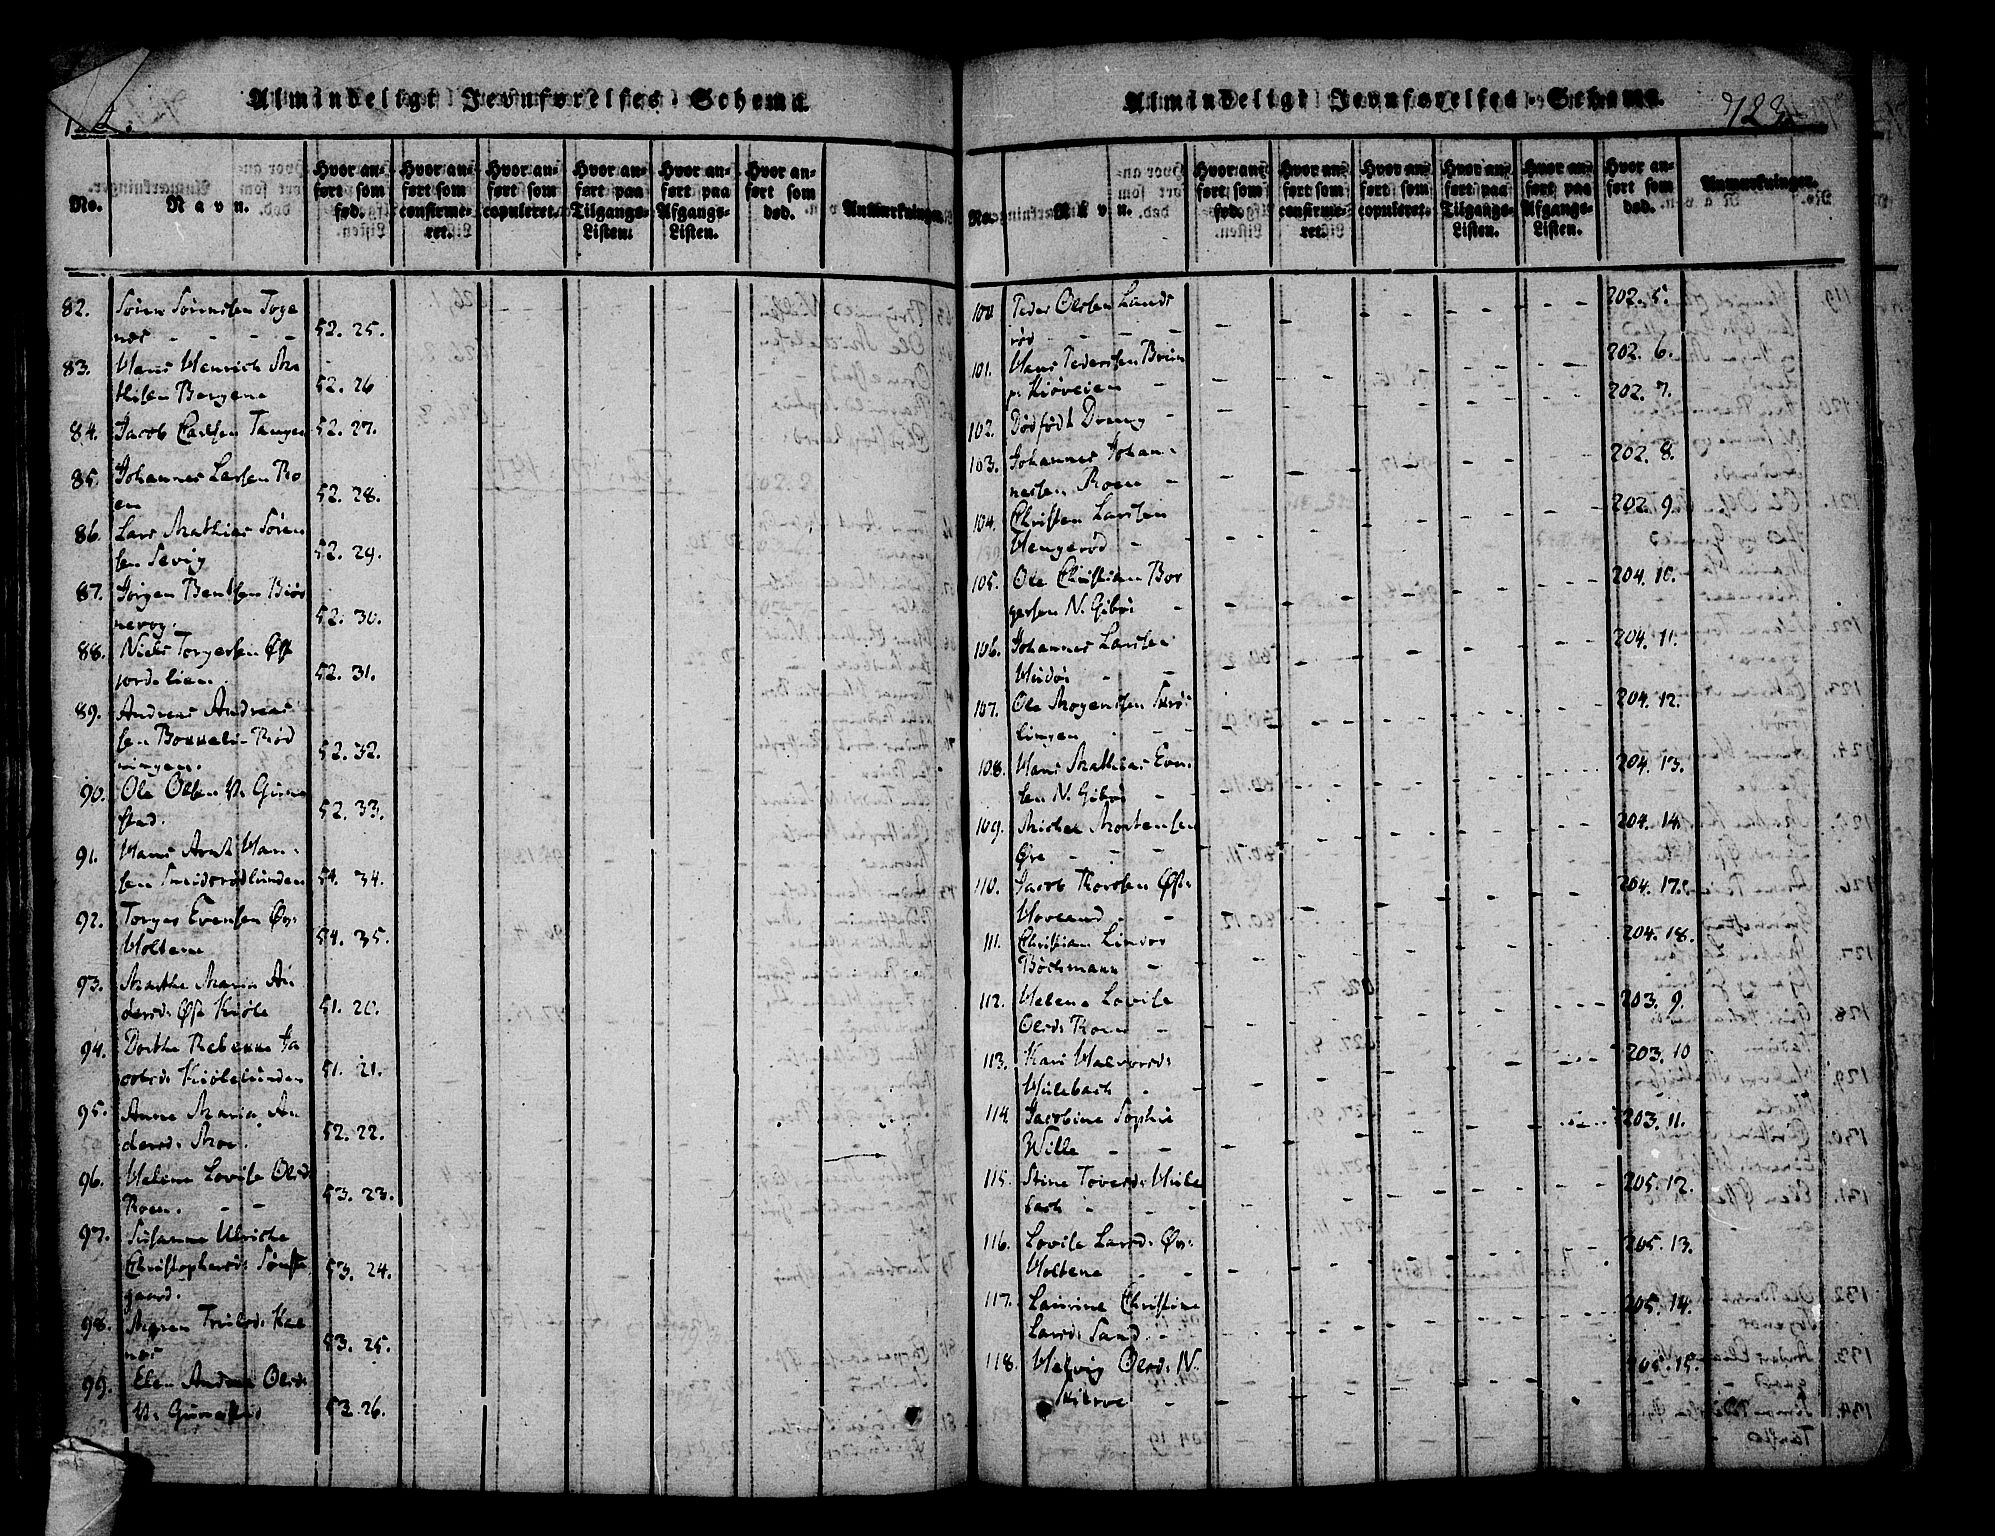 Almindeligt Jevnførelses-Schema.
No.
Navn.
Hvor anført som fød.
Hvor anført som confirmeret.
Hvor anført som copuleret.
Hvor anført paa Tilgangs-Listen.
Hvor anført paa Afgangs-Listen.
Hvor anført som død.
Anmærkninger.
82. Søren Sørensen Toge
nes - - - - 52. 25.
83. Hans Henrich Ma
thisen Bergene 52. 26
84. Jacob Carlsen Tangen 52. 27.
85. Johannes Larsen Ro
en 52. 28.
86. Lars Mathias Søren
sen Sevig 52. 29.
87. Jørgen Bentsen Biør
nevog. 52. 30.
88. Niels Torgersen Øst
jordelien 52. 31.
89. Andreas Andreas
sen Rød
ningen. 52. 32.
90. Ole Olsen V. Grime
stad. 52. 33.
91. Hans Arnt Han-
sen Smidsrødlunden 54. 34.
92. Torger Evensen Øv:
Holtene 54. 35.
93. Marthe Maria An
dersd: Øst Kiøle 51. 20.
94. Dorthe Rebecca Ja
cobsd: Kiølelunden 51. 21.
95. Anne Maria An
dersd: Moe. 52. 22.
96. Helene Lovise Olsd
Roen. - - 53. 23.
97. Susanne Ulriche
Christophersd: Sønste
gaard. 53. 24.
98. Maren Trulsd: Kal
nes 53. 25.
99. Elen Andrea Olsd:
V. Grimestad 53. 26.
Almindeligt Jevnførelses-Schema. 723.
No.
Navn.
Hvor anført som fød.
Hvor anført som confirmeret.
Hvor anført som copuleret.
Hvor anført paa Tilgangs-Listen.
Hvor anført paa Afgangs-Listen.
Hvor anført som død.
Anmærkninger.
100. Peder Olsen Lands
rød - - - 202. 5.
101. Hans Pedersen Bruun
p. Kiøveien - 202. 6.
102. Dødfødt Dreng - 202. 7.
103. Johannes Johan-
nesen Roen - 202. 8.
104. Christen Larsen
Hengerød - - 202. 9.
105. Ole Christian Bor
gersen N. Gibøe - 204. 10.
106. Johannes Larsen
Veidøe - - 204. 11.
107. Ole Mogensen
lingen - - 204. 12.
108. Hans Mathias Even-
sen N. Gibøe - - 204. 13.
109. Michel Mortensen
Øre - - - 204. 14.
110. Jacob Thorsen Øst:
Hovland - - 204. 17.
111. Christian Linder
Bøchmann - 204. 18.
112. Helene Lovise
Olsd: Roen - 203. 9.
113. Kari Halvorsd:
Hulebach - 203. 10
114. Jacobine Sophie
Wille - - 203. 11.
115. Stine Toversd: Hule
bach - - 205. 12.
116. Lovise Larsd: Øv:
Holtene - - 205. 13.
117. Laurine Christine
Larsd: Sand. - 205. 14.
118. Helvig Olsd: N.
Skierve - 205. 15.